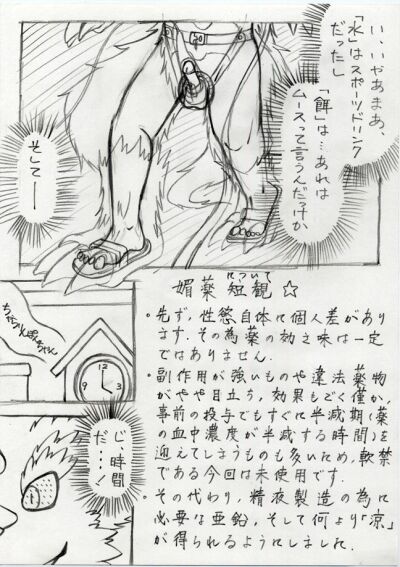 い、いやあまあ、
「水」はスポーツドリンク
だったし
「餌」は…あれは
ムースって言うんだっけか
そして――
媚薬短観☆
について
・先ず，性慾自体に個人差があり
ます．その為薬の効き味は一定
ではありません．
・副作用が強いものや違法薬物
がやや目立ち，効果もごく僅か，
事前の投与でもすぐに半減期(薬
の血中濃度が半減する時間)を
迎えてしまうものも多いため，軟禁
である今回は未使用です．
・その代わり，精液製造の為に
必要な亜鉛，そして何より「涼」
が得られるようにしました．
12
3
6
9
じ、時間
だ…！